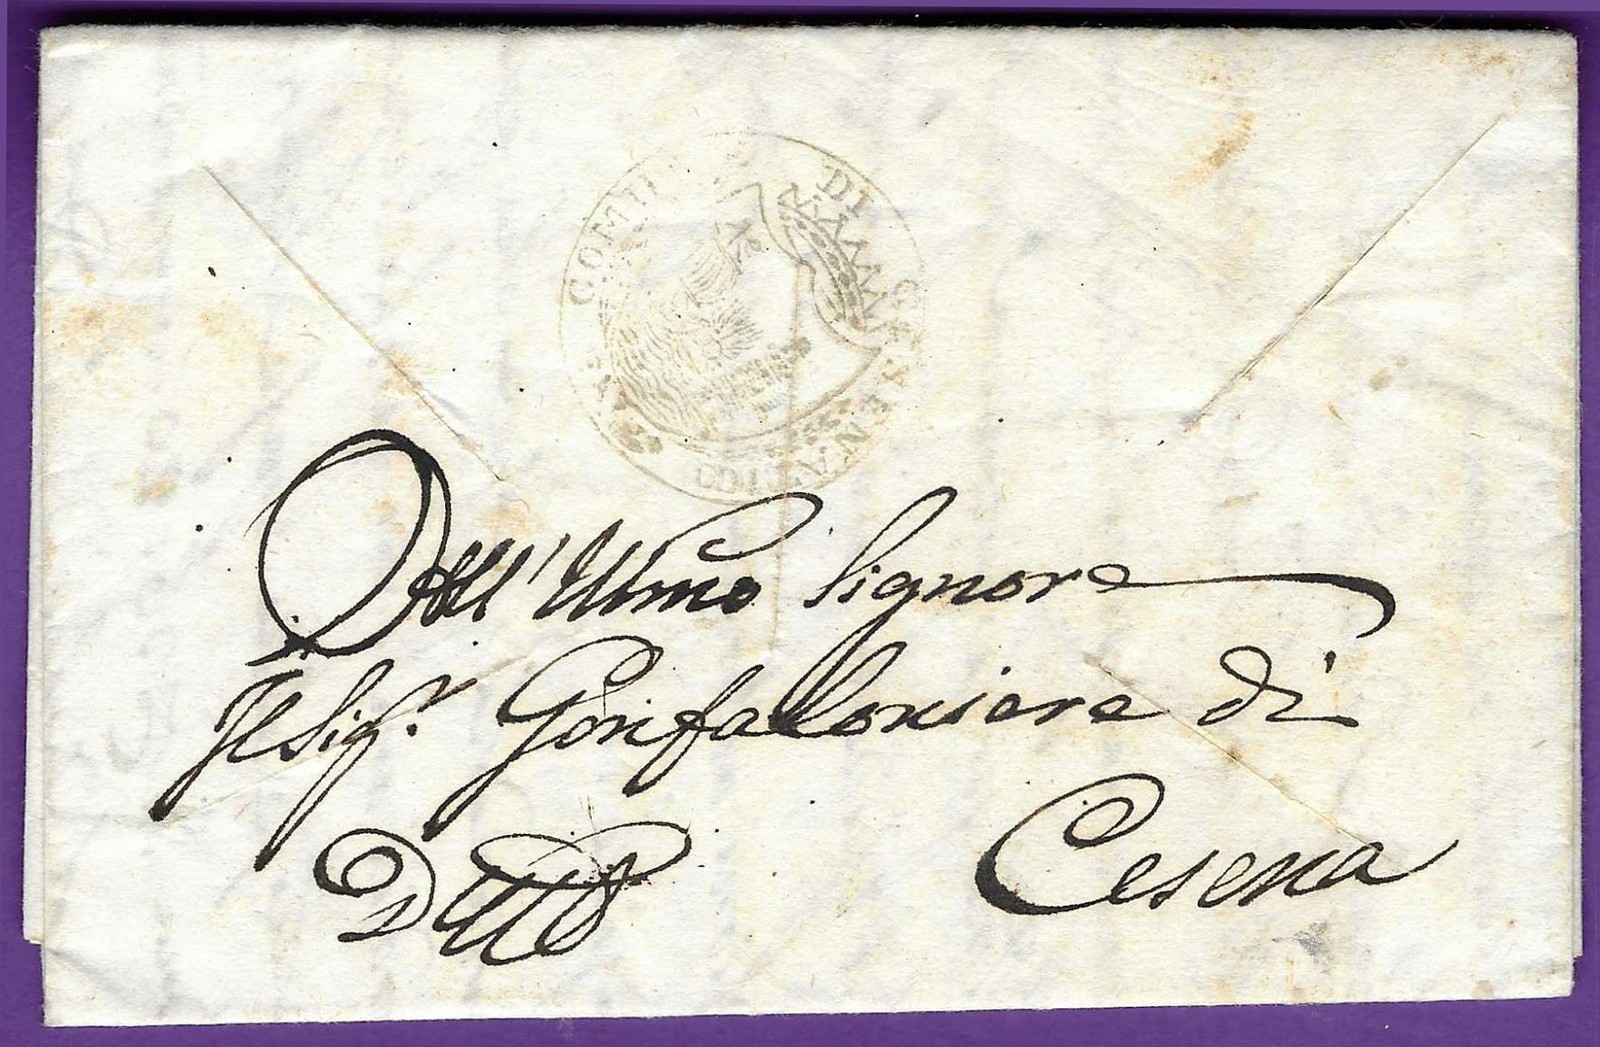 COMU DI CESENA
Dall'Illmo Signore
Il Sig.r Gonfaloniere di
Cesena